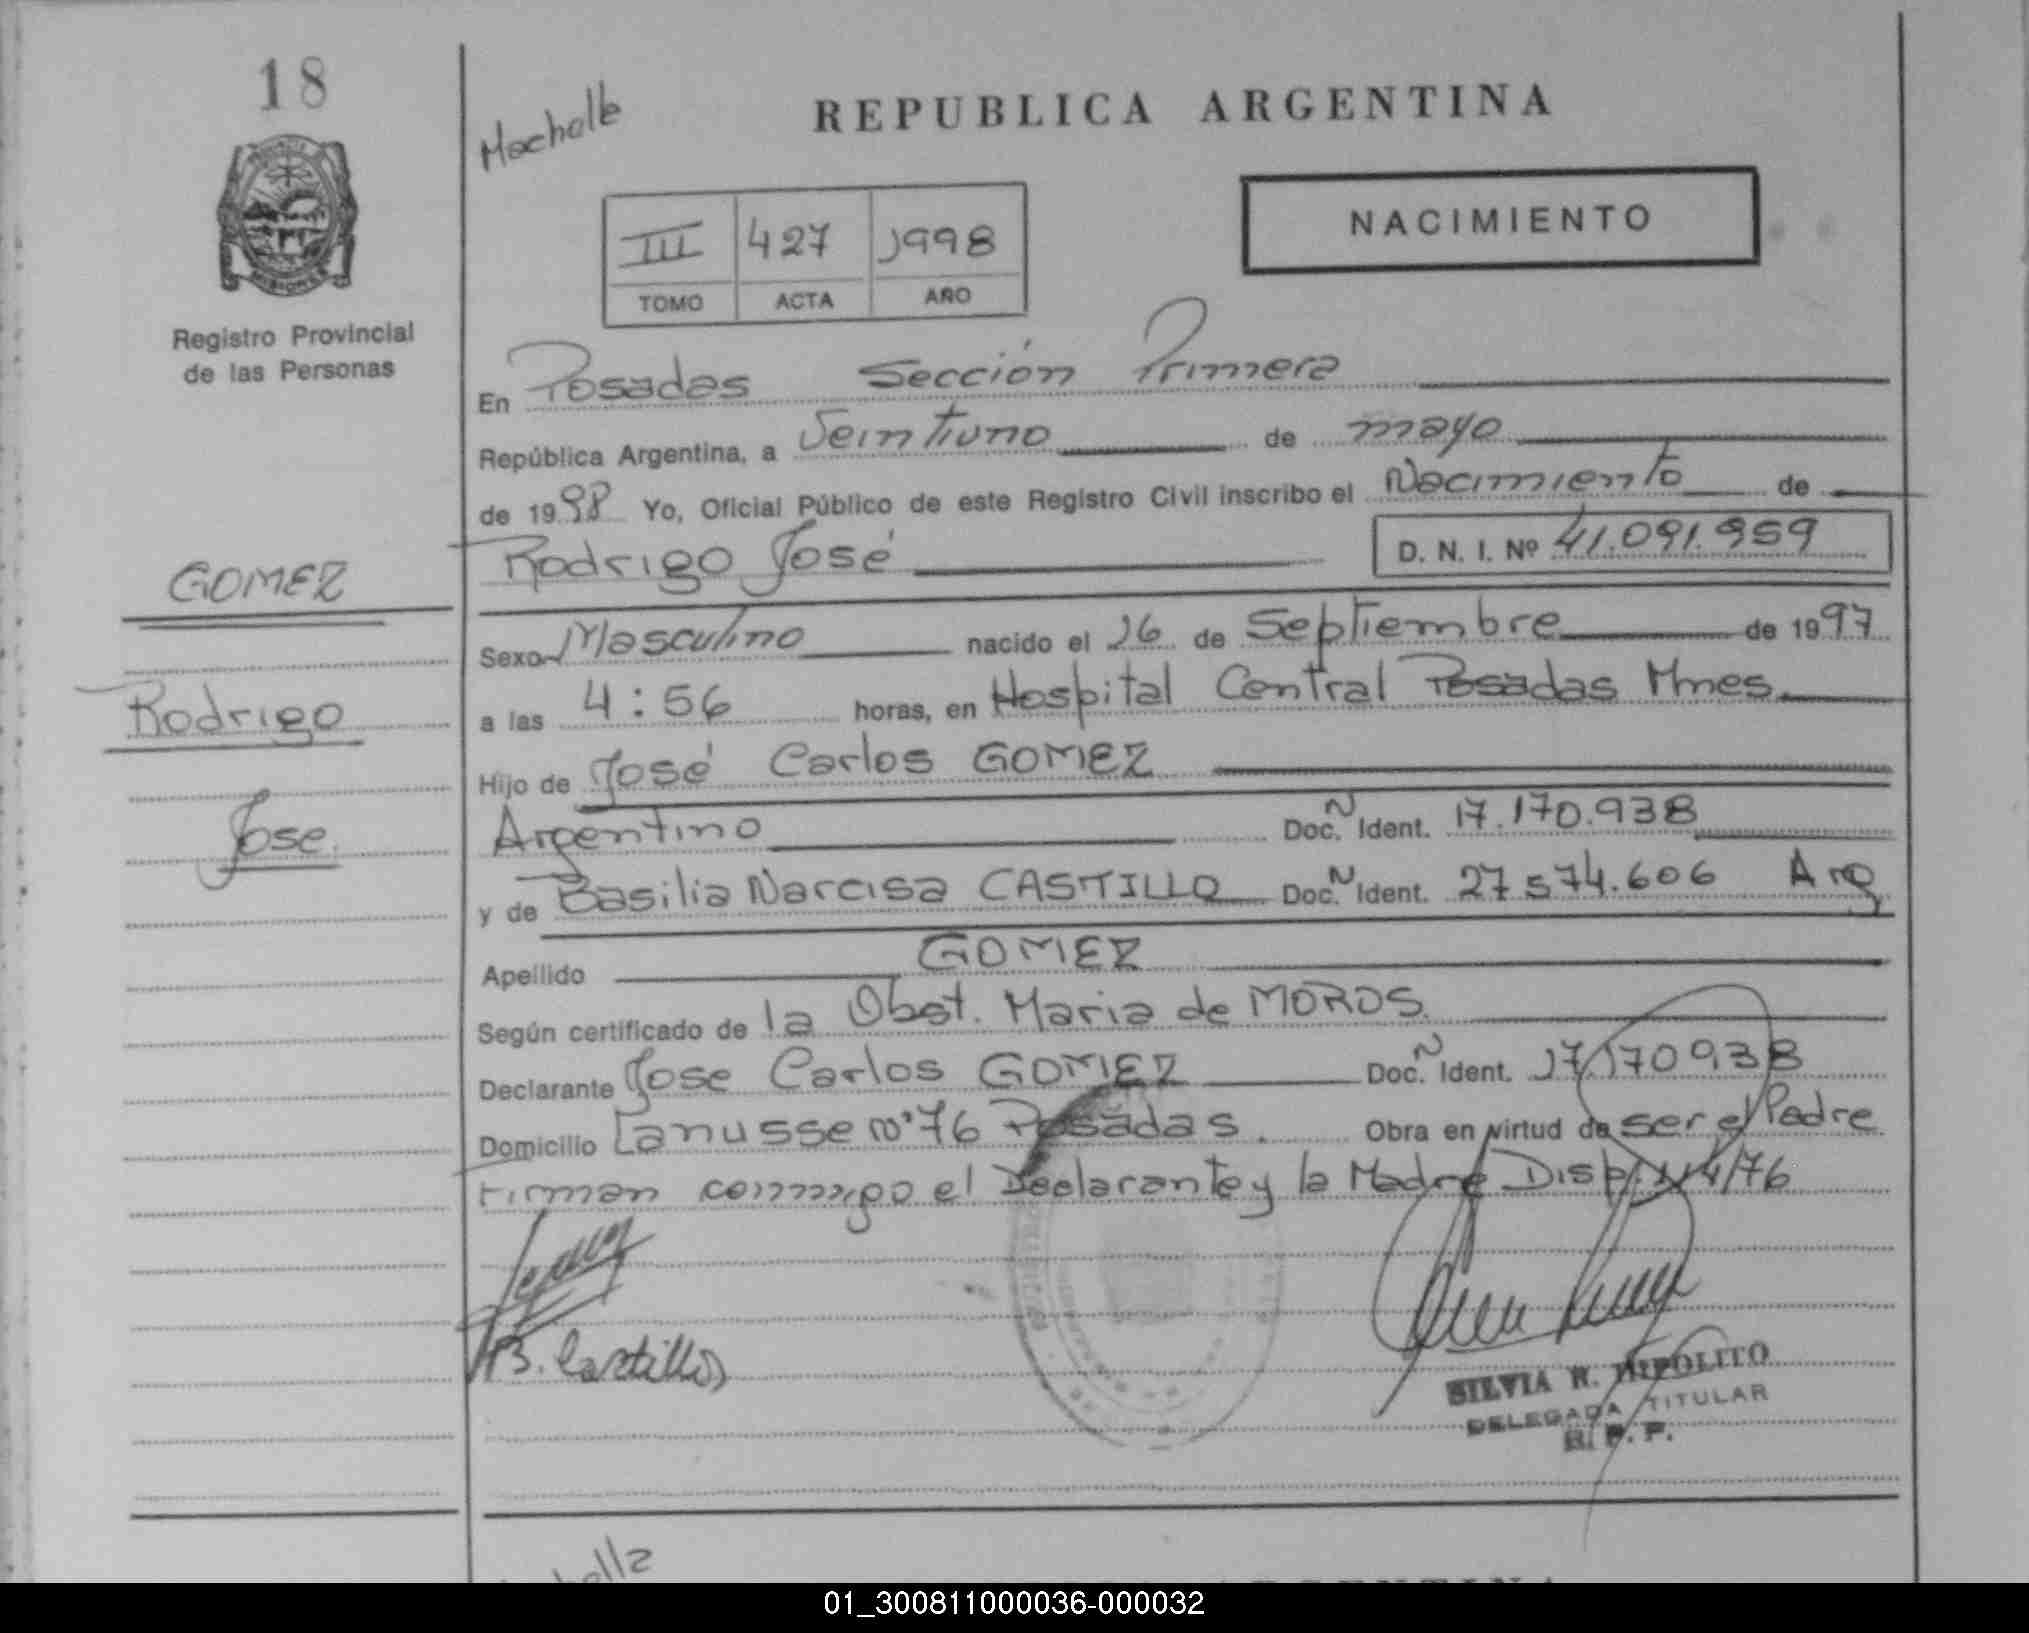 18
REPUBLICA ARGENTINA
NACIMIENTO
III 427 1998
TOMO ACTA AÑO
Registro Provincial
de las Personas
En Posadas Sección Primera
República Argentina, a Veintiuno de mayo
de 1998 Yo, Oficial Público de este Registro Civil inscribo el Nacimiento de
Rodrigo José D. N. I. Nº 41.091.959
GOMEZ
Sexo Masculino nacido el 26 de Septiembre de 1997
Rodrigo
a las 4:56 horas, en Hospital Central Posadas Mnes
Hijo de José Carlos GOMEZ
Jose
Argentino Doc. Ident. 17.170.938
y de Basilia Narcisa CASTILLO Doc. Ident. 27.574.606 Arg
Apellido GOMEZ
Según certificado de la Obst. Maria de MOROS.
Declarante Jose Carlos GOMEZ Doc. Ident. 17.170938
Domicilio Lanusse Nº 76 Posadas. Obra en virtud de ser el Padre
Firman conmigo el Declarante y la Madre Disp.
B. Castillo
SILVIA R. HIPOLITO
DELEGADA TITULAR
R. P. P.
01_300811000036-000032